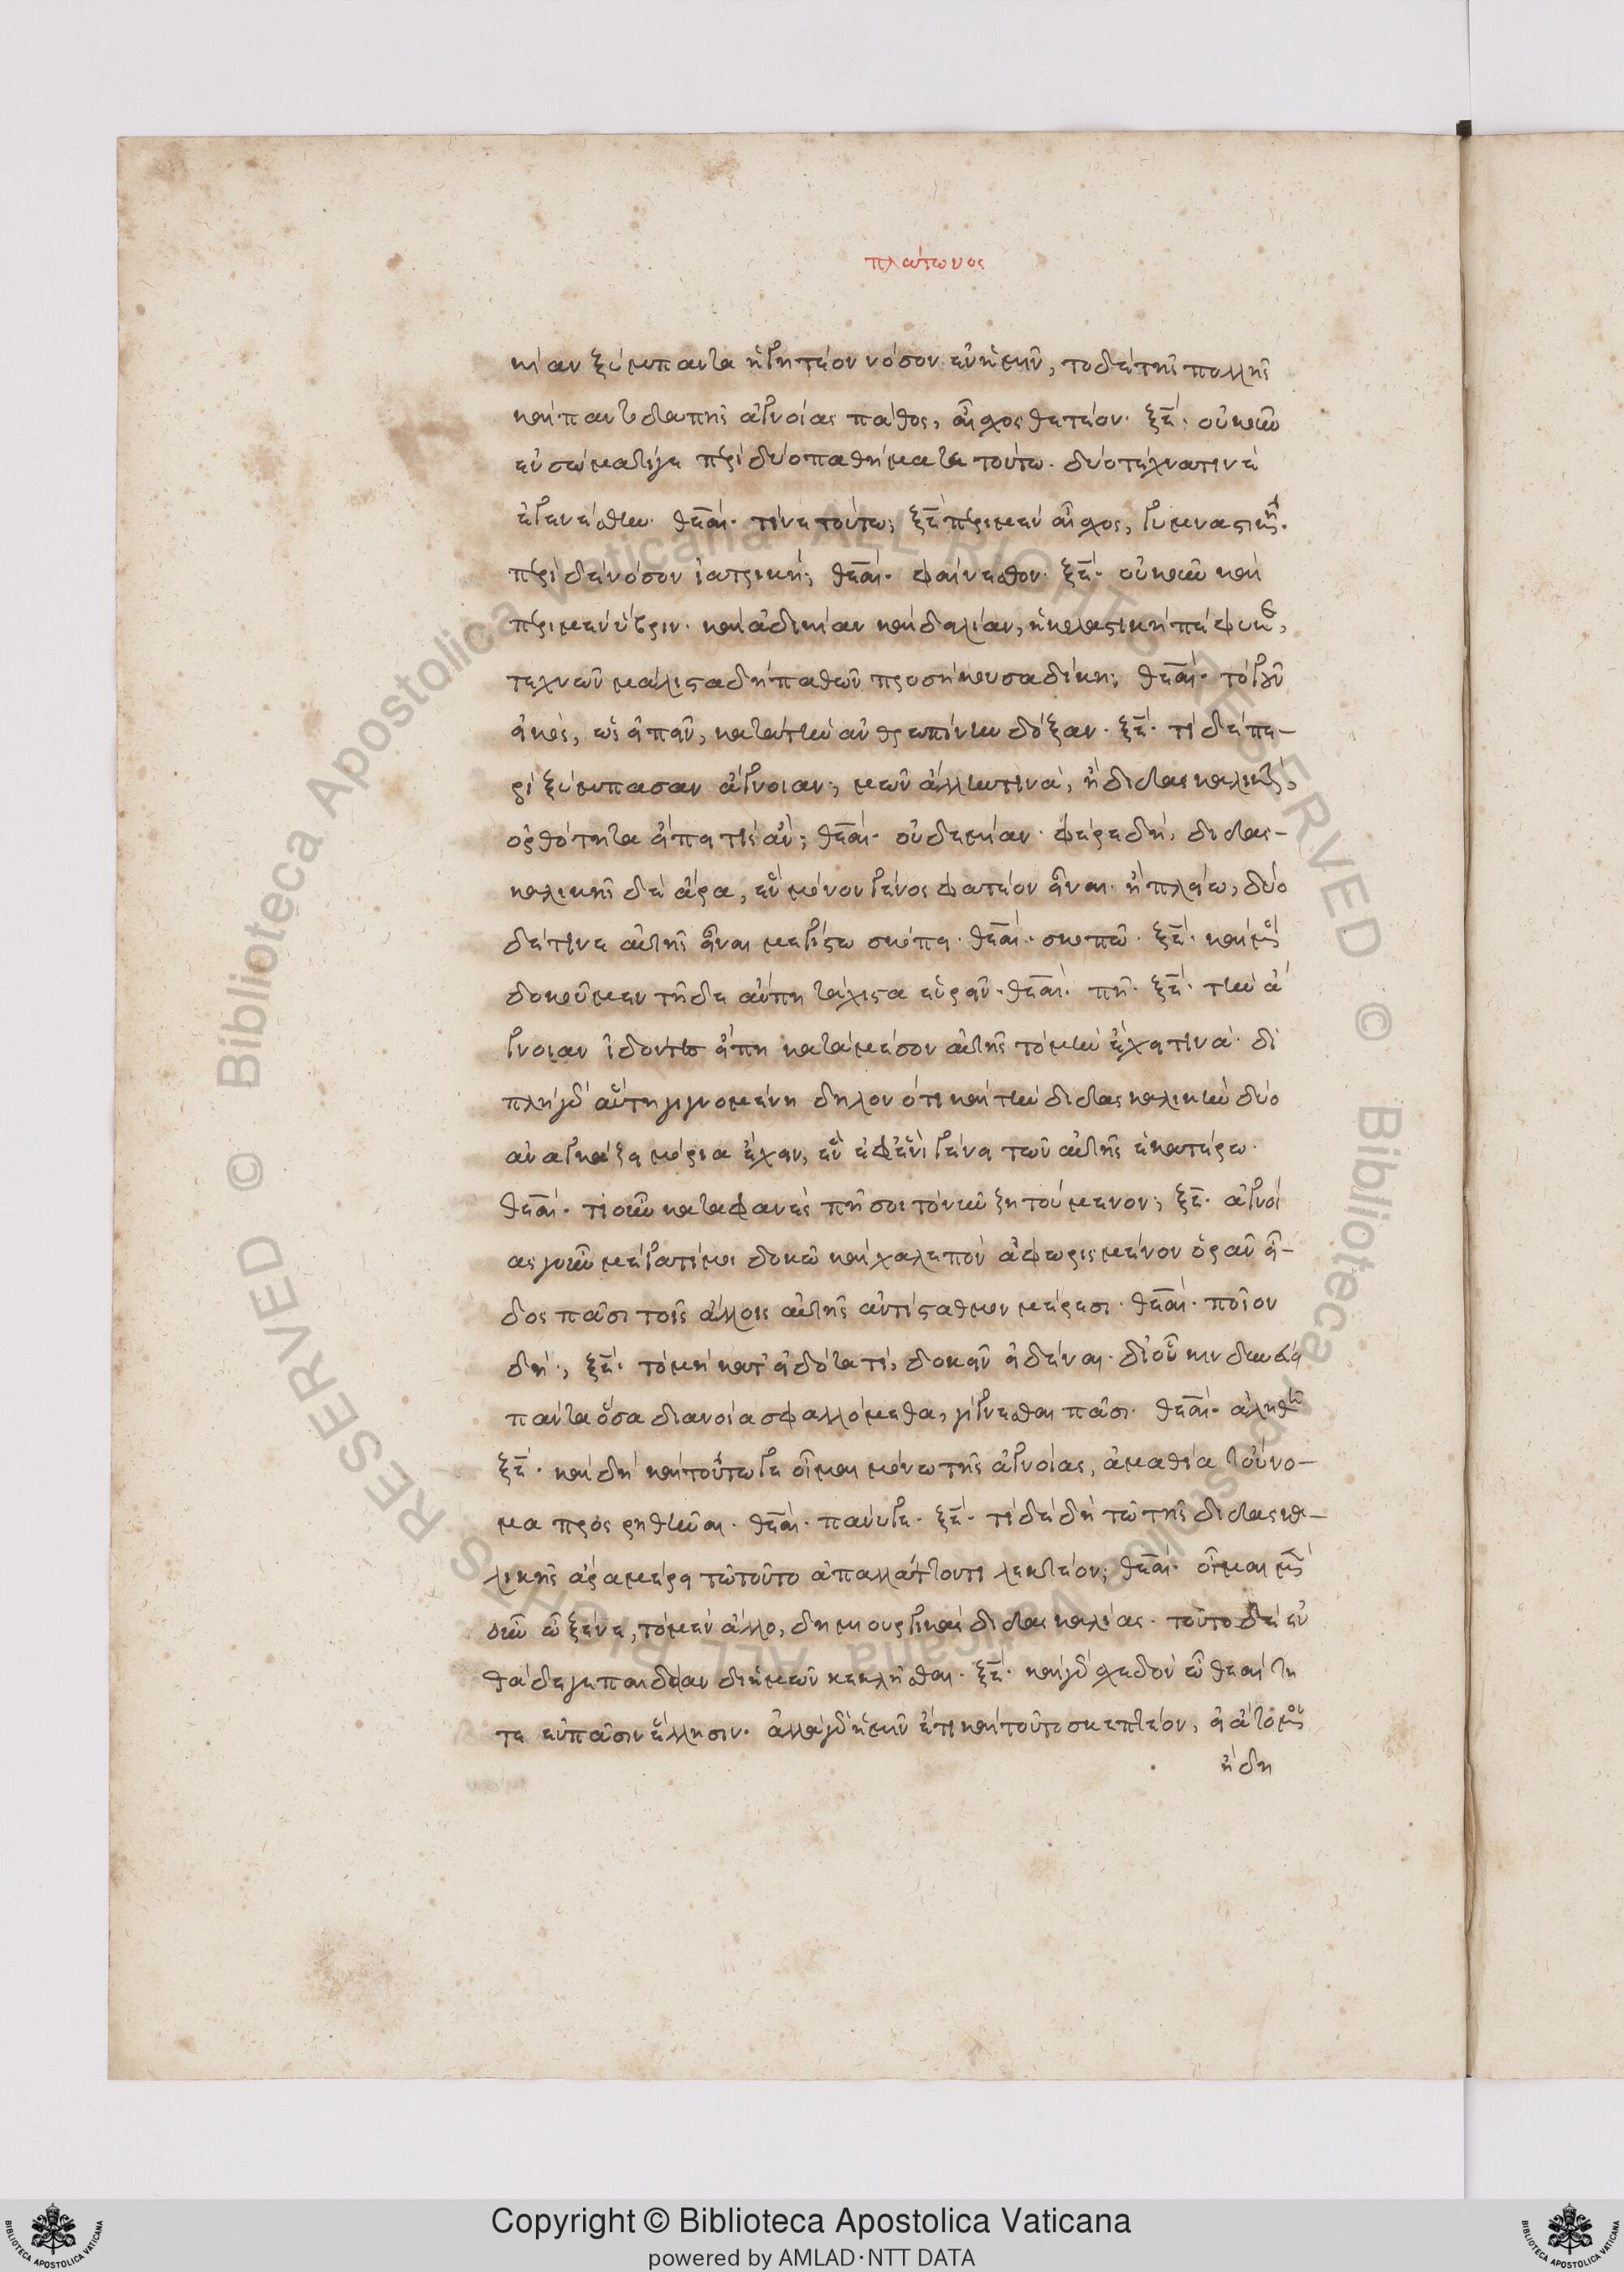 πλάτωνος
κίαν ξύμπαντα ἡγητέον νόσον ἐν ἡμῖν, τὸ δὲ τῆς πολλῆς
καὶ παντοδαπῆς ἀγνοίας πάθος, αἶσχος θετέον· ξε· οὐκοῦν
ἐν σώματί γε περὶ δύο παθήματε τούτω· δύο τέχνα τινὲ
ἐγενέσθην· θεαι· τίνε τούτω; ξε περὶ μὲν αἶσχος, γυμναστικὴ·
περὶ δὲ νόσον ἰατρική; θεαι· φαίνεσθον· ξε· οὐκοῦν καὶ
περὶ μὲν ὕβριν· καὶ ἀδικίαν καὶ δειλίαν, ἡ κολαστικὴ πέφυκε,
τεχνῶν μάλιστα δὴ πασῶν προσήκουσα δίκη; θεαι· τὸ γοῦν
εἰκός, ὡς εἰπεῖν, κατὰ τὴν ἀνθρωπίνην δόξαν· ξε· τί δὲ πε-
ρὶ ξύμπασαν ἄγνοιαν; μῶν ἄλλην τινά, ἢ διδασκαλικὴν,
ὀρθότητα εἴπῃ τις ἄν; θεαι· οὐδεμίαν· φέρε δή, διδασ-
καλικῆς δὲ ἆρα, ἓν μόνον γένος φατέον εἶναι· ἢ πλείω, δύο
δέ τινε αὐτῆς εἶναι μεγίστω σκόπει· θεαι· σκοπῶ· ξε· καί μοι
δοκοῦμεν τῇδε ἄν πῃ τάχιστα εὑρεῖν· θεαι· πῇ· ξε· τὴν ἄ
γνοιαν ἰδόντες εἴ πῃ κατὰ μέσον αὐτῆς τομὴν ἔχει τινά· δι
πλῆ γὰρ αὕτη γιγνομένη δῆλον ὅτι καὶ τὴν διδασκαλικὴν δύο
ἀναγκάζει μόρια ἔχειν, ἓν ἐφ' ἑνὶ γένει τῶν αὐτῆς ἑκατέρω·
θεαι· τί οὖν καταφανές πῇ σοι τὸ νῦν ζητούμενον; ξε· ἀγνοί
ας γοῦν μέγα τί μοι δοκῶ καὶ χαλεπὸν ἀφωρισμένον ὁρᾶν εἶ-
δος πᾶσι τοῖς ἄλλοις αὐτῆς ἀντίσταθμον μέρεσι· θεαι· ποῖον
δή; ξε· τὸ μὴ κατειδότα τί, δοκεῖν εἰδέναι· δι' οὗ κινδυνεύει
πάντα ὅσα διανοίᾳ σφαλλόμεθα, γίγνεσθαι πᾶσι· θεαι· ἀληθῆ
ξε· καὶ δὴ καὶ τούτω γε οἶμαι μόνω τῆς ἀγνοίας, ἀμαθία τοὔνο-
μα προσρηθῆναι· θεαι· πάνυ γε· ξε· τί δὲ δὴ τῶ τῆς διδασκα-
λικῆς ἆρα μέρει τῶ τοῦτο ἀπαλλάττοντι λεκτέον; θεαι· οἶμαι μὲν
οὖν ὦ ξένε, τὸ μὲν ἄλλο, δημιουργικὰς διδασκαλίας· τοῦτο δὲ ἐν
θάδε γε παιδείαν δι' ἡμῶν κεκλῆσθαι· ξε· καὶ γὰρ σχεδὸν ὦ θεαίτη
τε ἐν πᾶσιν ἕλλησιν· ἀλλὰ γὰρ ἡμῖν ἔτι καὶ τοῦτο σκεπτέον, εἰ ἄτομον
ἤδη
Copyright © Biblioteca Apostolica Vaticana
powered by AMLAD·NTT DATA